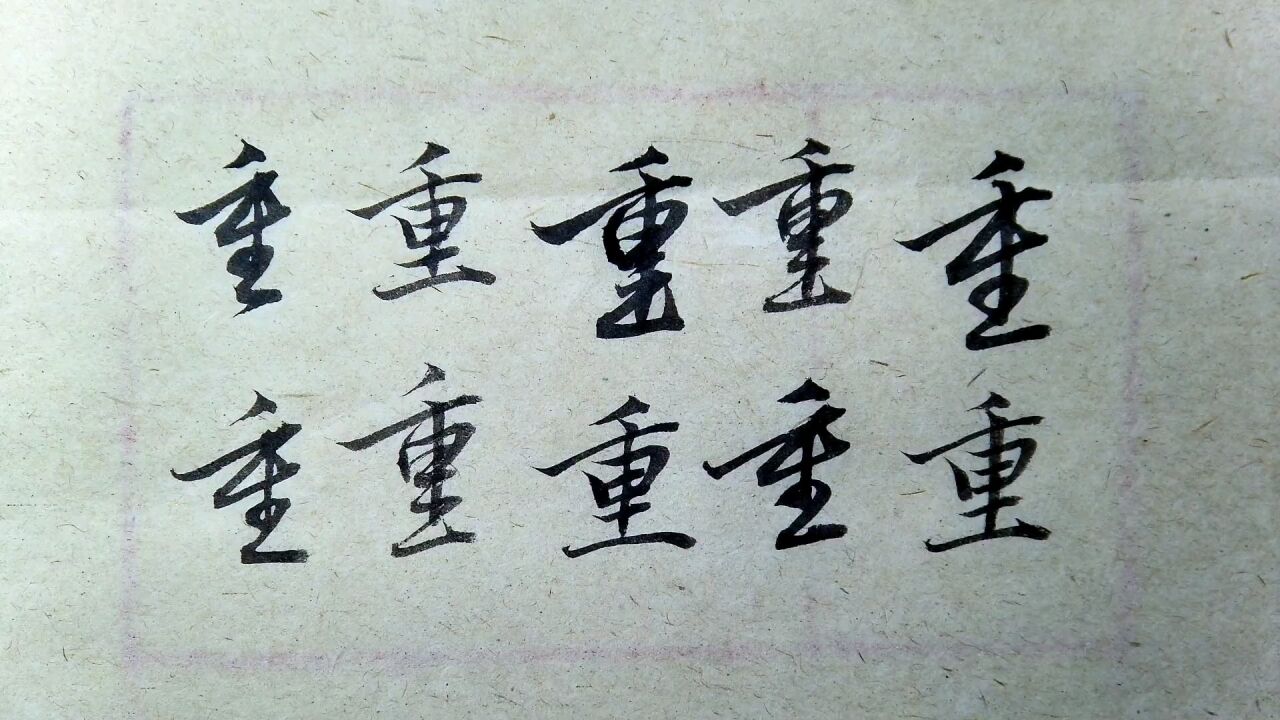 重重重重重
重重重重重